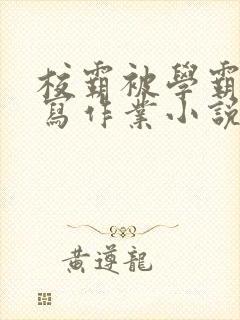 校霸被學霸
寫作業小說
黃遵龍